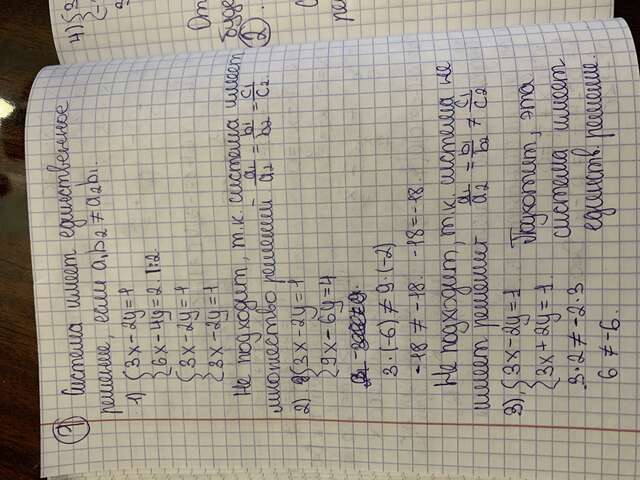 ① Система имеет единственное
решение, если a₁b₂ ≠ a₂b₁.
1) {3x-2y=1
{6x-4y=2 |:2
{3x-2y=1
{3x-2y=1
Не подходит, т.к. система имеет
множество решений - a₁/a₂ = b₁/b₂ = c₁/c₂
2) {3x-2y=1
{9x-6y=4
3·(-6) ≠ 9·(-2)
-18 ≠ -18. -18=-18.
Не подходит, т.к. система не
имеет решений - a₁/a₂ = b₁/b₂ ≠ c₁/c₂
3) {3x-2y=1
{3x+2y=1.
Подходит, эта
система имеет
единств. решение.
3·2 ≠ -2·3
6 ≠ -6.
4) {
②